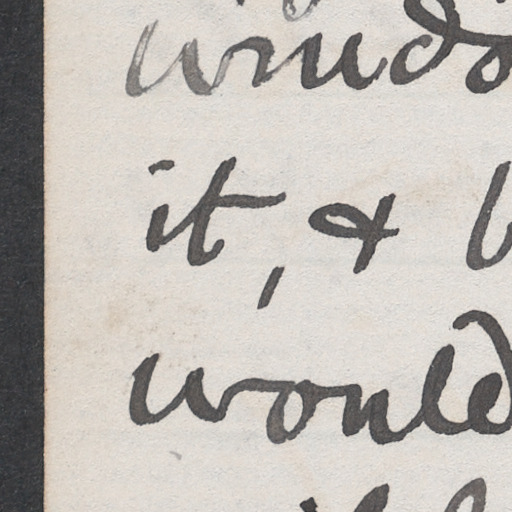 windo
it, & b
would